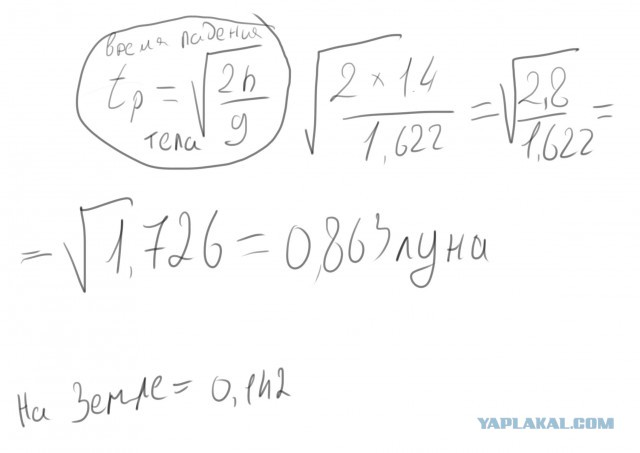 время падения
tр = √(2h/g)
тела
√(2 × 1.4/1,622) = √(2,8/1,622) =
= √1,726 = 0,863 луна
На Земле = 0,142
YAPLAKAL.COM